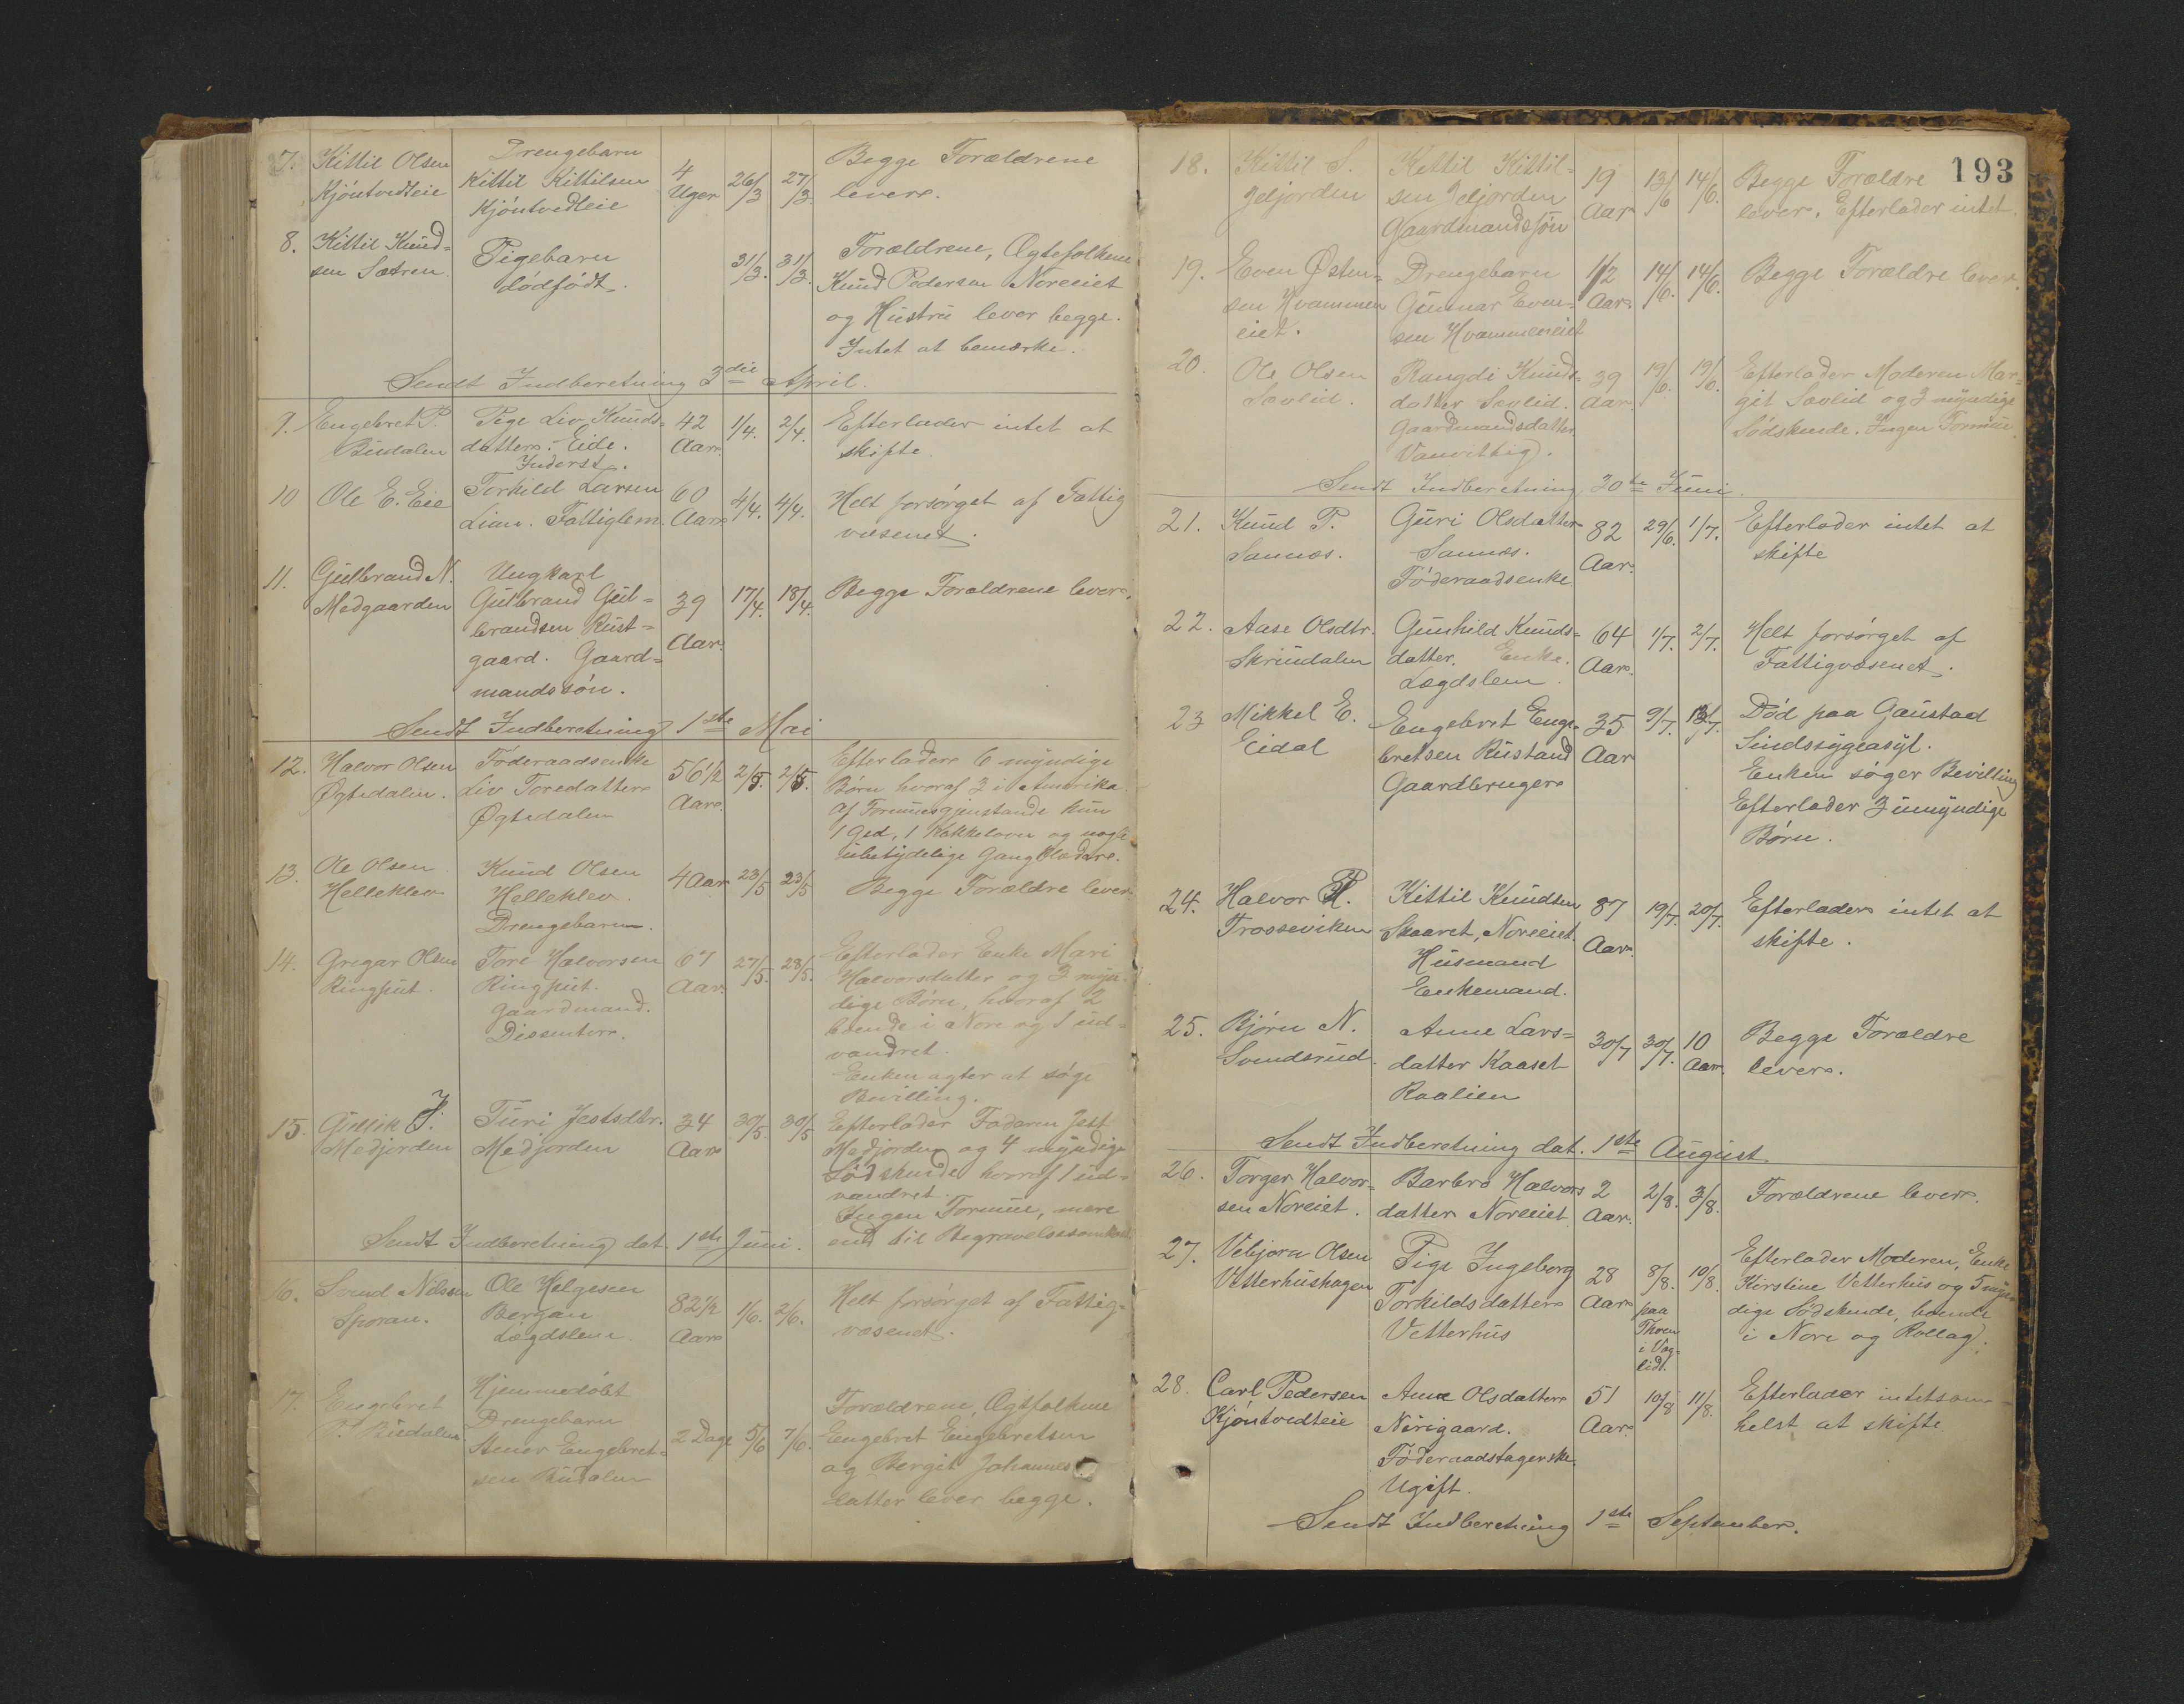 7. Kittil Olsen Kjöntvedteie
Drengebarn Kittil Kittilsen Kjöntvedteie
4 Uger 26/3 27/3.
Begge Forældrene
lever.
8. Kittil Knud=
sen Sætren.
Pigebarn
dödfödt.
31/3. 31/3.
Forældrene, Ægtefolkene
Knud Pedersen Noreeiet
og Hustru lever begge.
Intet at bemærke.
Sendt Indberetning 3die April.
9. Engebret P.
Rudalen
Pige Liv Knuds=
datter Eide.
Inderst.
42
Aar.
1/4. 2/4.
Efterlader intet at
skifte.
10 Ole E. Eie
Torkild Larsen
Lien. Fattiglem.
60
Aar.
4/4. 4/4.
Helt forsörget af Fattig
væsenet.
11. Gulbrand N.
Medgaarden
Ungkarl
Gulbrand Gul=
brandsen Rust=
gaard. Gaard=
mandssön.
39
Aar.
17/4. 18/4.
Begge Forældrene lever.
Sendt Indberetning 1ste Mai
12. Halvor Olsen
Øgtedalen.
Föderaadsenke
Liv Toredatter
Øgtedalen
56 1/2
Aar.
2/5. 2/5.
Efterlader 6 myndige
Børn hvoraf 3 i Amerika.
Af Formuesgjenstande kun
1 Gjed, 1 Kakkelovn og nogle
ubetydelige Gangklæder.
13. Ole Olsen
Helleklev
Knud Olsen
Helleklev.
Drengebarn.
4 Aar 23/5 23/5
Begge Forældre lever.
14. Gregar Olsen
Ringput.
Tore Halvorsen
Ringput.
Gaardmand.
Dissenter.
67
Aar.
27/5. 28/5.
Efterlader Enke Mari
Halvorsdatter og 3 myn=
dige Börn, hvoraf 2
boende i Nore og 1 ud=
vandret.
Enken agter at söge
Bevilling.
15. Gullik J.
Medjorden
Turi Jestsdtr.
Medjorden
34
Aar
30/5. 30/5
Efterlader Faderen Jest
Medjorden og 4 myndige
Södskende hvoraf 1 ud=
vandret.
Ingen Formue, mere
end til Begravelsesomkost.
Sendt Indberetning dat. 1ste Juni.
16. Svend Nilssen
Sporan.
Ole Helgesen
Bergan
Lægdslem.
82 1/2
Aar
1/6. 2/6.
Helt forsörget af Fattig=
væsenet.
17. Engebret
P. Rudalen
Hjemmedöbt
Drengebarn
Stener Engebret=
sen Rudalen
2 Dage 5/6 7/6.
Forældrene, Ægtfolkene
Engebret Engebretsen
og Bergit Johannes
datter lever begge.
193
18. Kittil S.
Jeljorden
Kittil Kittil=
sen Jeljorden
Gaardmandssön
19
Aar
13/6 14/6.
Begge Forældre
lever. Efterlader intet.
19. Even Østen=
sen Hvammen
eiet.
Drengebarn
Gunnar Even=
sen Hvammeneiet
1/2
Aar.
14/6. 14/6.
Begge Forældre lever.
20. Ole Olsen
Sævlid.
Rangdi Knuds=
datter Sevlid.
Gaardmandsdatter
Vanvittig.
39
Aar.
19/6. 19/6.
Efterlader Moderen Mar=
git Sævlid og 3 myndige
Södskende. Ingen Formue.
Sendt Indberetning 30te Juni.
21. Knud P.
Sannæs.
Guri Olsdatter
Sannæs.
Föderaadsenke
82
Aar.
29/6. 1/7.
Efterlader intet at
skifte
22. Aase Olsdtr.
Skrudalen
Gunhild Knuds=
datter. Enke.
Lægdslem.
64
Aar.
1/7. 2/7.
Helt forsörget af
Fattigvæsenet.
23 Mikkel E.
Eidal
Engebret Enge=
bretsen Rustand
Gaardbruger
35
Aar
9/7. 13/7.
Död paa Gaustad
Sindssygeasyl.
Enken söger Bevilling
Efterlader 3 umyndige
Børn.
24. Halvor H.
Trosseviken
Kittil Knudsen
Skaaret, Noreeiet.
Husmand
Enkemand.
87
Aar.
19/7. 20/7.
Efterlader intet at
skifte.
25. Bjørn N.
Svendsrud.
Anne Lars=
datter Kaaset
Raalien
30/7 30/7. 10
Aar.
Begge Forældre
lever.
Sendt Indberetning dat. 1ste August.
26. Torger Halvor=
sen Noreiet.
Barbro Halvors
datter Noreeiet
2
Aar.
2/8. 3/8.
Forældrene lever.
27. Vebjørn Olsen
Vetterhushagen
Pige Ingeborg
Torkildsdatter
Vetterhus
28
Aar
8/8.
paa
Thoen
i Væg=
lid.
10/8.
Efterlader Moderen, Enke
Kirstine Vetterhus og 7 myn=
dige Södskende, boende
i Nore og Rollag.
28. Carl Pedersen
Kjöntvedteie
Anne Olsdatter
Nörigaard.
Föderaadstagerske.
Ugift.
51
Aar.
10/8 11/8.
Efterlader intetsom=
helst at skifte
Sendt Indberetning 1ste September.